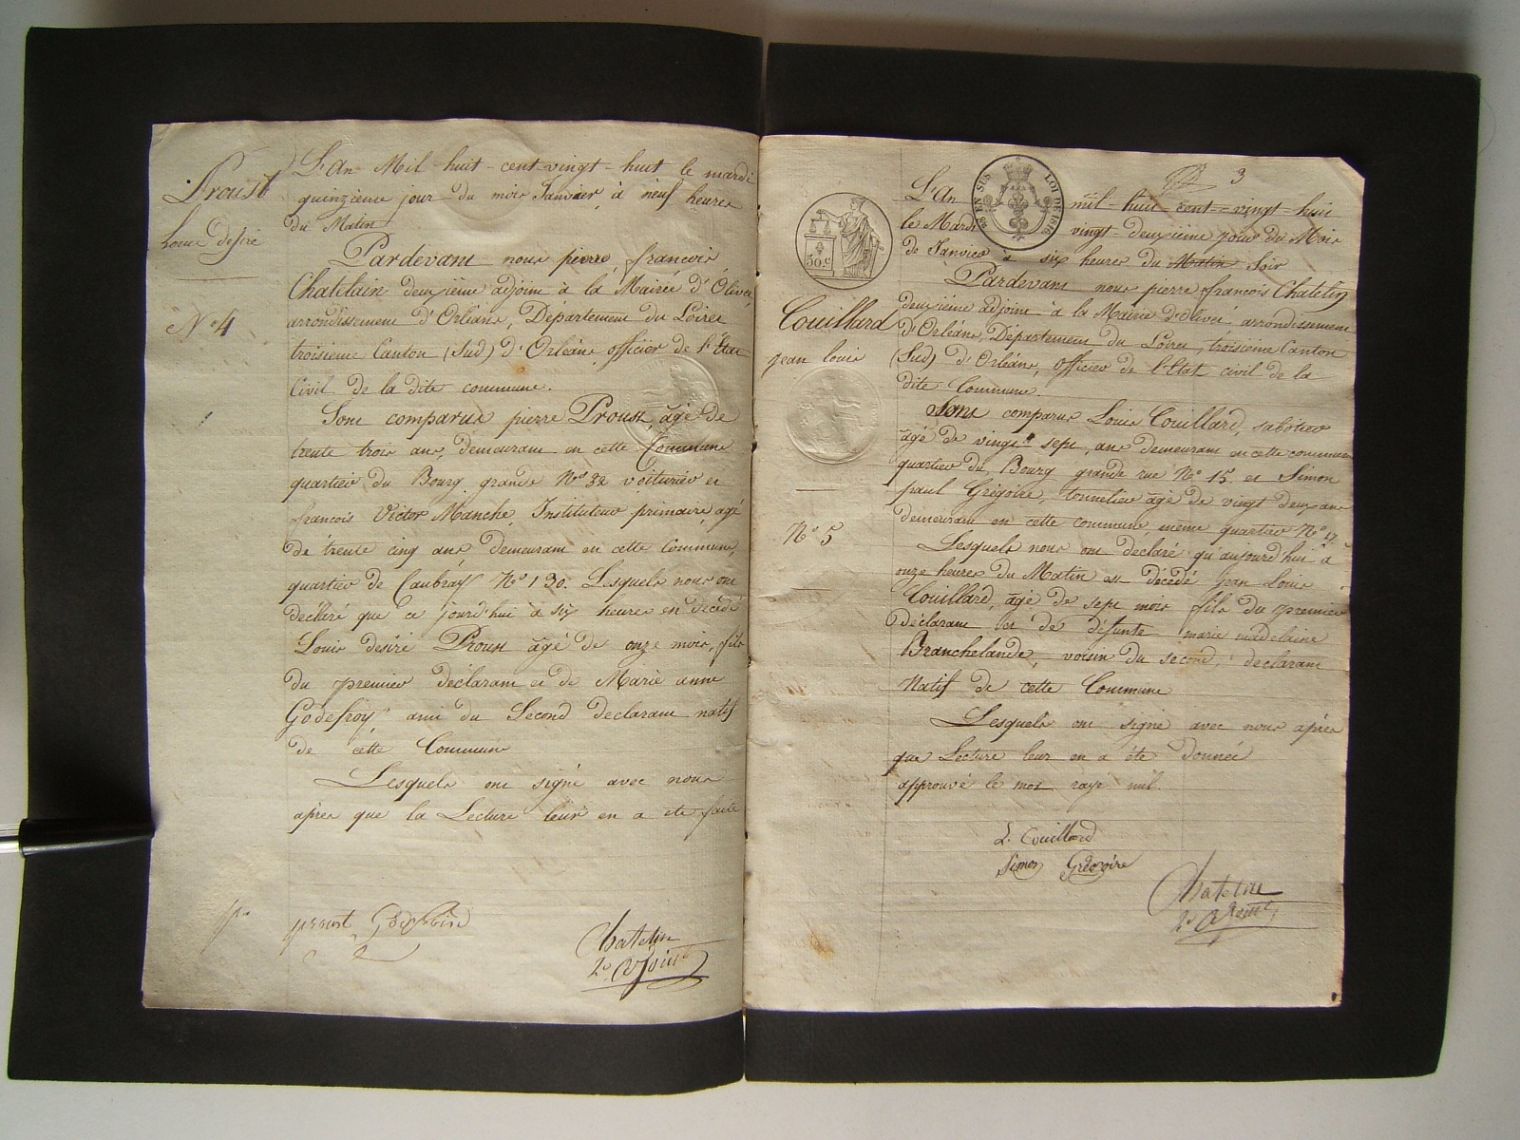 Proust
Louis désiré
N° 4
L'An Mil-huit-cent-vingt-huit le mardi
quinzieme jour du mois Janvier, à neuf heures
du Matin
Pardevant nous pierre francois
Chatelain deuxieme adjoint à la Mairie d'Olivet,
arrondissement d'Orléans, Département du Loiret
troisieme Canton (Sud) d'Orléans officier de l'État
Civil de la dite commune.
Sont comparus pierre Proust, âgé de
trente trois ans, demeurant en cette Commune
quartier du Bourg grande N° 32 voiturier et
francois Victor Manche, Instituteur primaire, agé
de trente cinq ans, demeurant en cette Commune,
quartier de Caubray N° 130. Lesquels nous ont
déclaré que ce jourd'hui à six heures est décédé
Louis désiré Proust âgé de onze mois, fils
du premier déclarant et de Marie anne
Godefroy ami du Second declarant natif
de cette Commune
Lesquels ont signé avec nous
après que la Lecture leur en a été faite
Chatelin
2e adjoint
3
30 c
EN SUS
LOI DE 1816
Couillard
jean louis
N° 5
L'An mil-huit-cent-vingt-huit
le Mardi vingt-deuxième jour du Mois
de Janvier à six heures du Matin Soir
Pardevant nous pierre francois Chatelin
deuxième adjoint à la Mairie d'olivet arrondissement
d'Orléans, Département du Loiret, troisième Canton
(Sud) d'Orléans, officier de l'Etat civil de la
dite Commune.
Sont comparus Louis Couillard, sabotier
âgé de vingt sept ans demeurant en cette commune
quartier du Bourg grande rue N° 15 et Simon
paul Grégoire, tonnelier âgé de vingt deux ans
demeurant en cette commune, même quartier N° 17
Lesquels nous ont déclaré qu'aujourd'hui à
onze heures du Matin est décédé jean Louis
Couillard, âgé de sept mois fils du premier
déclarant et de défunte marie madelaine
Branchelande, voisin du second, déclarant
Natif de cette Commune
Lesquels ont signé avec nous après
que Lecture leur en a été donnée
approuvé le mot rayé nul.
L. Couillard
Simon Grégoire
Chatelin
2e adjoint